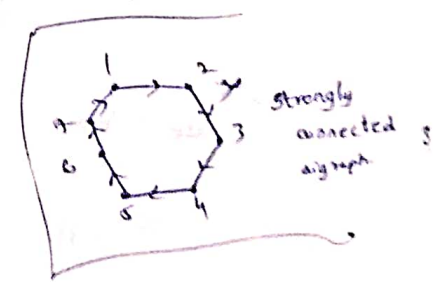 1
2
3
4
5
6
7
strongly
connected
digraph